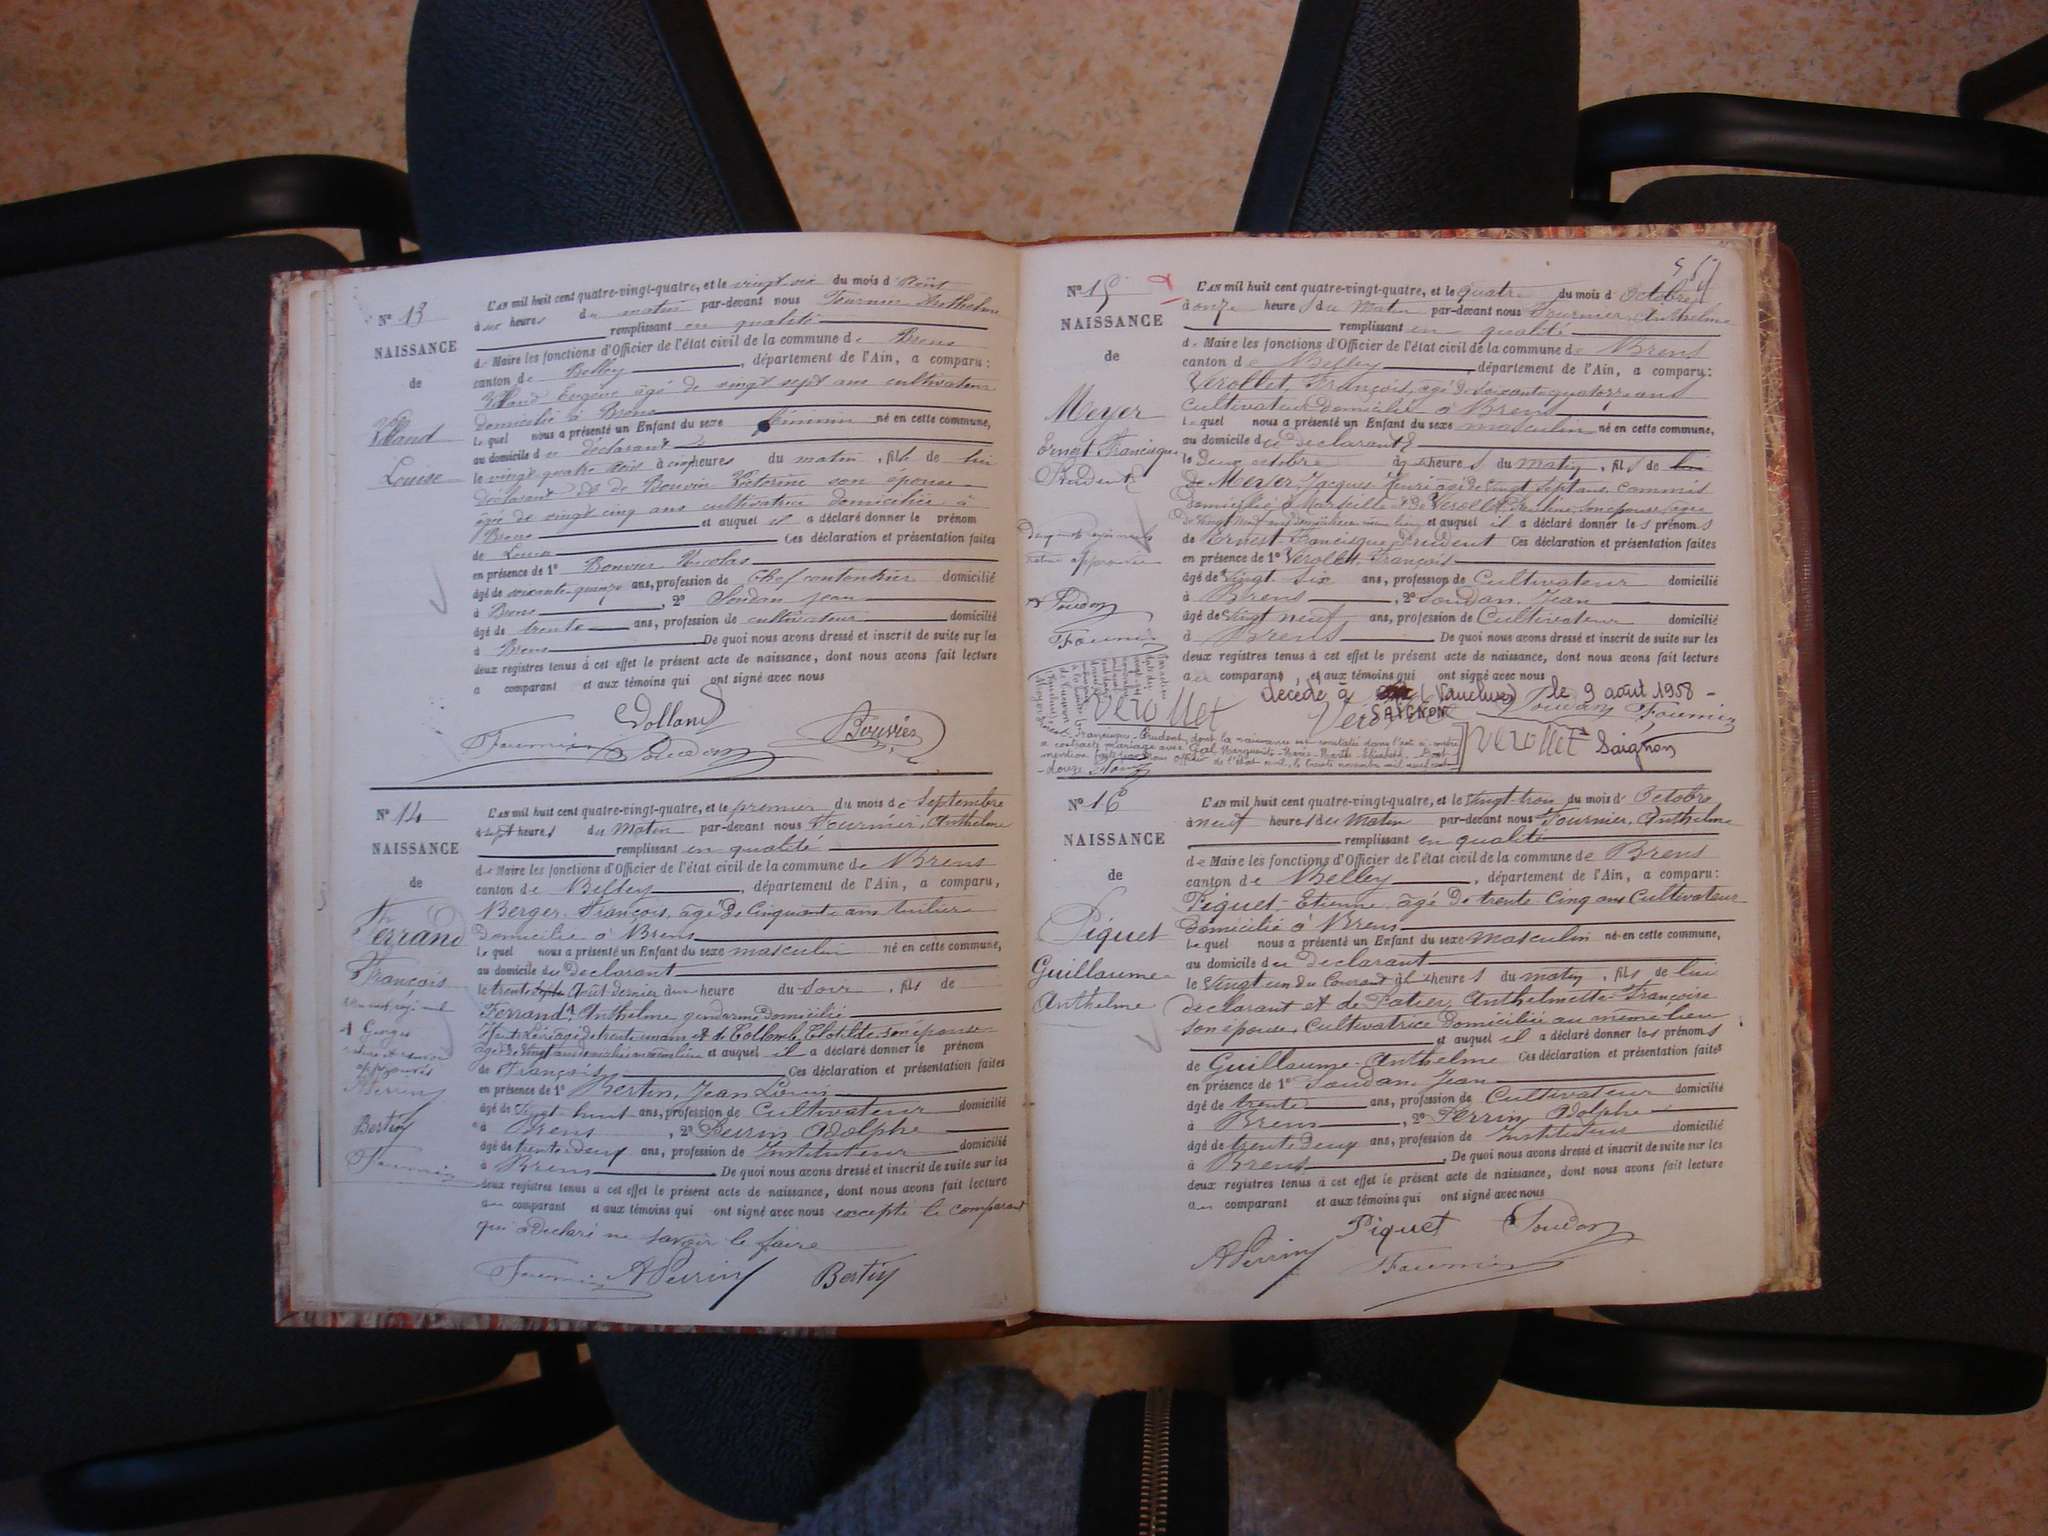 N° 13
NAISSANCE
de
Volland
Louise
L'an mil huit cent quatre-vingt-quatre, et le vingt six du mois d'Août
à six heures du matin par-devant nous Fournier Anthelme
remplissant en qualité
de Maire les fonctions d'Officier de l'état civil de la commune de Brens
canton de Belley, département de l'Ain, a comparu:
Volland Eugène âgé de vingt sept ans cultivateur
domicilié à Brens
lequel nous a présenté un Enfant du sexe féminin né en cette commune,
au domicile du déclarant
le vingt quatre août à cinq heures du matin, fille de lui
déclarant et de Bouvier Victorine son épouse
âgée de vingt cinq ans cultivatrice domiciliée à
Brens et auquel il a déclaré donner le prénom
de Louise Ces déclaration et présentation faites
en présence de 1° Bouvier Nicolas
âgé de soixante-quinze ans, profession de chef cantonnier domicilié
à Brens, 2° Soudan Jean
âgé de trente ans, profession de cultivateur domicilié
à Brens De quoi nous avons dressé et inscrit de suite sur les
deux registres tenus à cet effet le présent acte de naissance, dont nous avons fait lecture
au comparant et aux témoins qui ont signé avec nous
Volland
Fournier Soudan Bouvier
N° 14
NAISSANCE
de
Ferrand
François
A Georges
A Perrin
Bertin
Fournier
L'an mil huit cent quatre-vingt-quatre, et le premier du mois de Septembre
à sept heures du Matin par-devant nous Fournier, Anthelme
remplissant en qualité
de Maire les fonctions d'Officier de l'état civil de la commune de Brens
canton de Belley, département de l'Ain, a comparu,
Berger François, âgé de Cinquante ans tuilier
Domicilié à Brens
lequel nous a présenté un Enfant du sexe masculin né en cette commune,
au domicile du déclarant
le trente Août dernier à une heure du soir, fils de
Ferrand Anthelme gendarme domicilié
âgé de trente un ans et de Collomb, Clotilde, son épouse
et auquel il a déclaré donner le prénom
de François Ces déclaration et présentation faites
en présence de 1° Bertin, Jean Louis
âgé de vingt huit ans, profession de Cultivateur domicilié
à Brens, 2° Perrin Adolphe
âgé de trente deux ans, profession de Instituteur domicilié
à Brens De quoi nous avons dressé et inscrit de suite sur les
deux registres tenus à cet effet le présent acte de naissance, dont nous avons fait lecture
au comparant et aux témoins qui ont signé avec nous excepté le comparant
qui a déclaré ne savoir le faire
Fournier A Perrin Bertin
N° 15
NAISSANCE
de
Meyer
Ernest Francisque
Prudent
Soudan
Fournier
L'an mil huit cent quatre-vingt-quatre, et le quatre du mois d'Octobre
à onze heures du Matin par-devant nous Fournier, Anthelme
remplissant en qualité
de Maire les fonctions d'Officier de l'état civil de la commune de Brens
canton de Belley, département de l'Ain, a comparu:
Verollet, François, âgé de soixante quatorze ans
cultivateur domicilié à Brens
lequel nous a présenté un Enfant du sexe masculin né en cette commune,
au domicile du déclarant
le deux octobre à heures du matin, fils de lui
de Meyer Jacques Henri âgé de vingt sept ans, commis
domicilié à Marseille et de Verollet son épouse, âgée
de vingt neuf ans et auquel il a déclaré donner les prénoms
de Ernest Francisque Prudent Ces déclaration et présentation faites
en présence de 1° Verollet, François
âgé de vingt six ans, profession de Cultivateur domicilié
à Brens, 2° Soudan, Jean
âgé de vingt neuf ans, profession de Cultivateur domicilié
à Brens De quoi nous avons dressé et inscrit de suite sur les
deux registres tenus à cet effet le présent acte de naissance, dont nous avons fait lecture
au comparant, et aux témoins qui ont signé avec nous
décédé à (Vaucluse) le 9 août 1958 -
SAIGNON
Verollet Soudan Fournier
Verollet Saignon
Francisque-Prudent, dont la naissance est constatée dans l'acte ci-contre
a contracté mariage avec Gal Marguerite-Marie
mention faite par Nous officier de l'état civil, le trente novembre mil neuf cent
-douze
N° 16
NAISSANCE
de
Piquet
Guillaume
Anthelme
L'an mil huit cent quatre-vingt-quatre, et le vingt-trois du mois d'Octobre
à neuf heures du Matin par-devant nous Fournier, Anthelme
remplissant en qualité
de Maire les fonctions d'Officier de l'état civil de la commune de Brens
canton de Belley, département de l'Ain, a comparu:
Piquet Etienne âgé de trente Cinq ans Cultivateur
Domicilié à Brens
lequel nous a présenté un Enfant du sexe masculin né en cette commune,
au domicile du déclarant
le vingt un du Courant à heures du matin, fils de lui
déclarant et de Patier, Anthelmette Françoise
son épouse, Cultivatrice Domiciliée au même lieu
et auquel il a déclaré donner les prénoms
de Guillaume-Anthelme Ces déclaration et présentation faites
en présence de 1° Soudan, Jean
âgé de trente ans, profession de Cultivateur domicilié
à Brens, 2° Perrin, Adolphe
âgé de trente deux ans, profession de Instituteur domicilié
à Brens De quoi nous avons dressé et inscrit de suite sur les
deux registres tenus à cet effet le présent acte de naissance, dont nous avons fait lecture
au comparant et aux témoins qui ont signé avec nous
A Perrin Piquet Soudan
Fournier